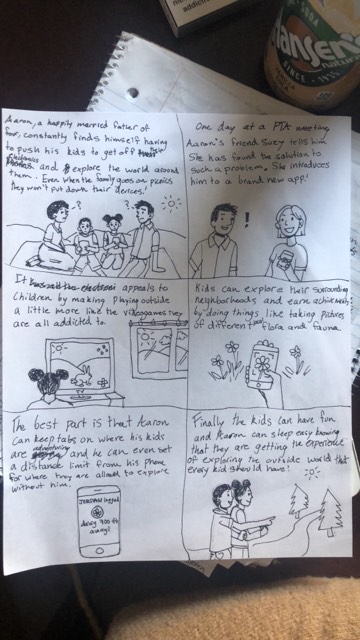 Aaron, a happily married father of
four, constantly finds himself having
to push his kids to get off their
electronics and explore the world around
them. Even when the family goes on picnics
they won't put down their devices!
?
One day at a PTA meeting,
Aaron's friend Suzy tells him
She has found the solution to
such a problem. She introduces
him to a brand new app!
!
It appeals to
Children by making playing outside
a little more like the videogames they
are all addicted to.
Kids can explore their surrounding
neighborhoods and earn achievements
by doing things like taking pictures
of different flora and fauna
The best part is that Aaron
can keep tabs on where his kids
are adventuring and he can even set
a distance limit from his phone
for where they are allowed to explore
without him.
logged
daisy 900 ft
away!
Finally the kids can have fun
and Aaron can sleep easy knowing
that they are getting the experience
of exploring the outside world that
every kid should have!
SODA
Hansen's
natural
SINCE
addictive